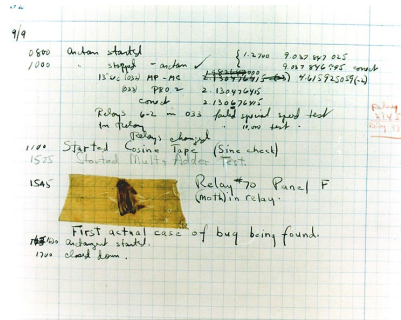 9/9
0800 antan started
1000 " stopped - antan ✓ { 1.2700 9.037 847 025
9.037 846 995 correct
13"uc (032) MP-MC 4.615925059(-2)
(033) PRO 2 2.130476415
correct 2.130676415
Relays 6-2 in 033 failed special speed test
in Relay " 10,000 test.
Relays changed
1100 Started Cosine Tape (Sine check)
1525 Started Mult+Adder Test.
1545 Relay #70 Panel F
(moth) in relay.
First actual case of bug being found.
antangent started.
1700 closed down.